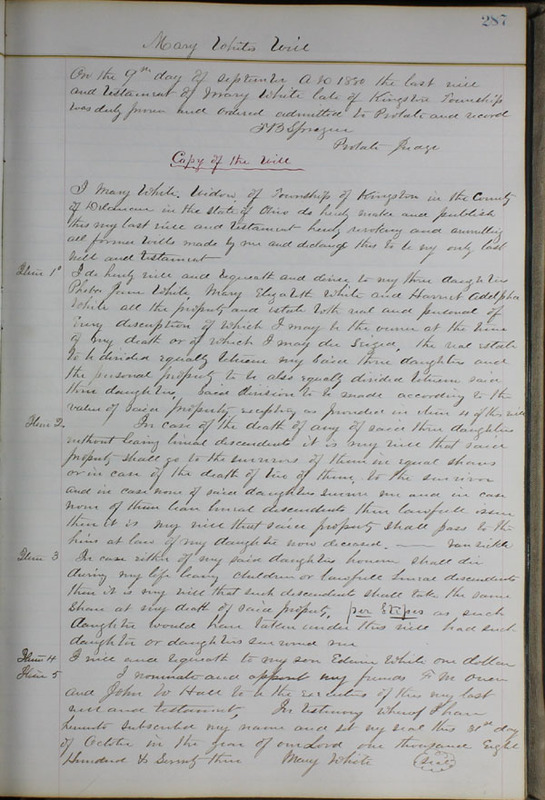 287
Mary Whites Will
On the 9th day of September A D 1880 the last will
and Testament of Mary White late of Kingston Township
was duly proven and ordered admitted to Probate and record
F B Sprague
Probate Judge
Copy of the Will
I Mary White, Widow, of Township of Kingston in the County
of Delaware in the State of Ohio do hereby make and publish
this my last will and testament hereby revoking and annulling
all former wills made by me and declaring this to be my only last
will and testament
Item 1st I do hereby will and bequeath and devise to my three daughters
Jane White, Mary Elizabeth White and Harriet Adelpha
White all the property and estate both real and personal of
every description of which I may be the owner at the time
of my death or of which I may die Seized, the real estate
to be divided equally between my said three daughters and
the personal property to be also equally divided between said
three daughters, said division to be made according to the
value of said property excepting as provided in item 4 of this will
Item 2. In case of the death of any of said three daughters
without leaving lineal descendents it is my will that said
property shall go to the survivors of them in equal shares
or in case of the death of two of them, to the survivor
and in case none of said daughters survive me and in case
none of them leave lineal descendents then lawful issue
then it is my will that said property shall pass to the
heirs at law of my daughter now deceased.
Item 3 In case either of my said daughters shall die
during my life leaving children or lawfull lineal descendents
then it is my will that such descendents shall take the same
share at my death of said property, per stirpes as such
daughter would have taken under this will had such
daughter or daughters survived me
Item 4 I will and bequeath to my son Edwin White one dollar
Item 5 I nominate and appoint my friends F M Owen
and John W Hall to be the executors of this my last
will and testament, In testimony whereof I have
hereunto subscribed my name and set my seal this 31st day
of October in the year of our Lord one thousand Eight
Hundred & Seventy three Mary White Seal